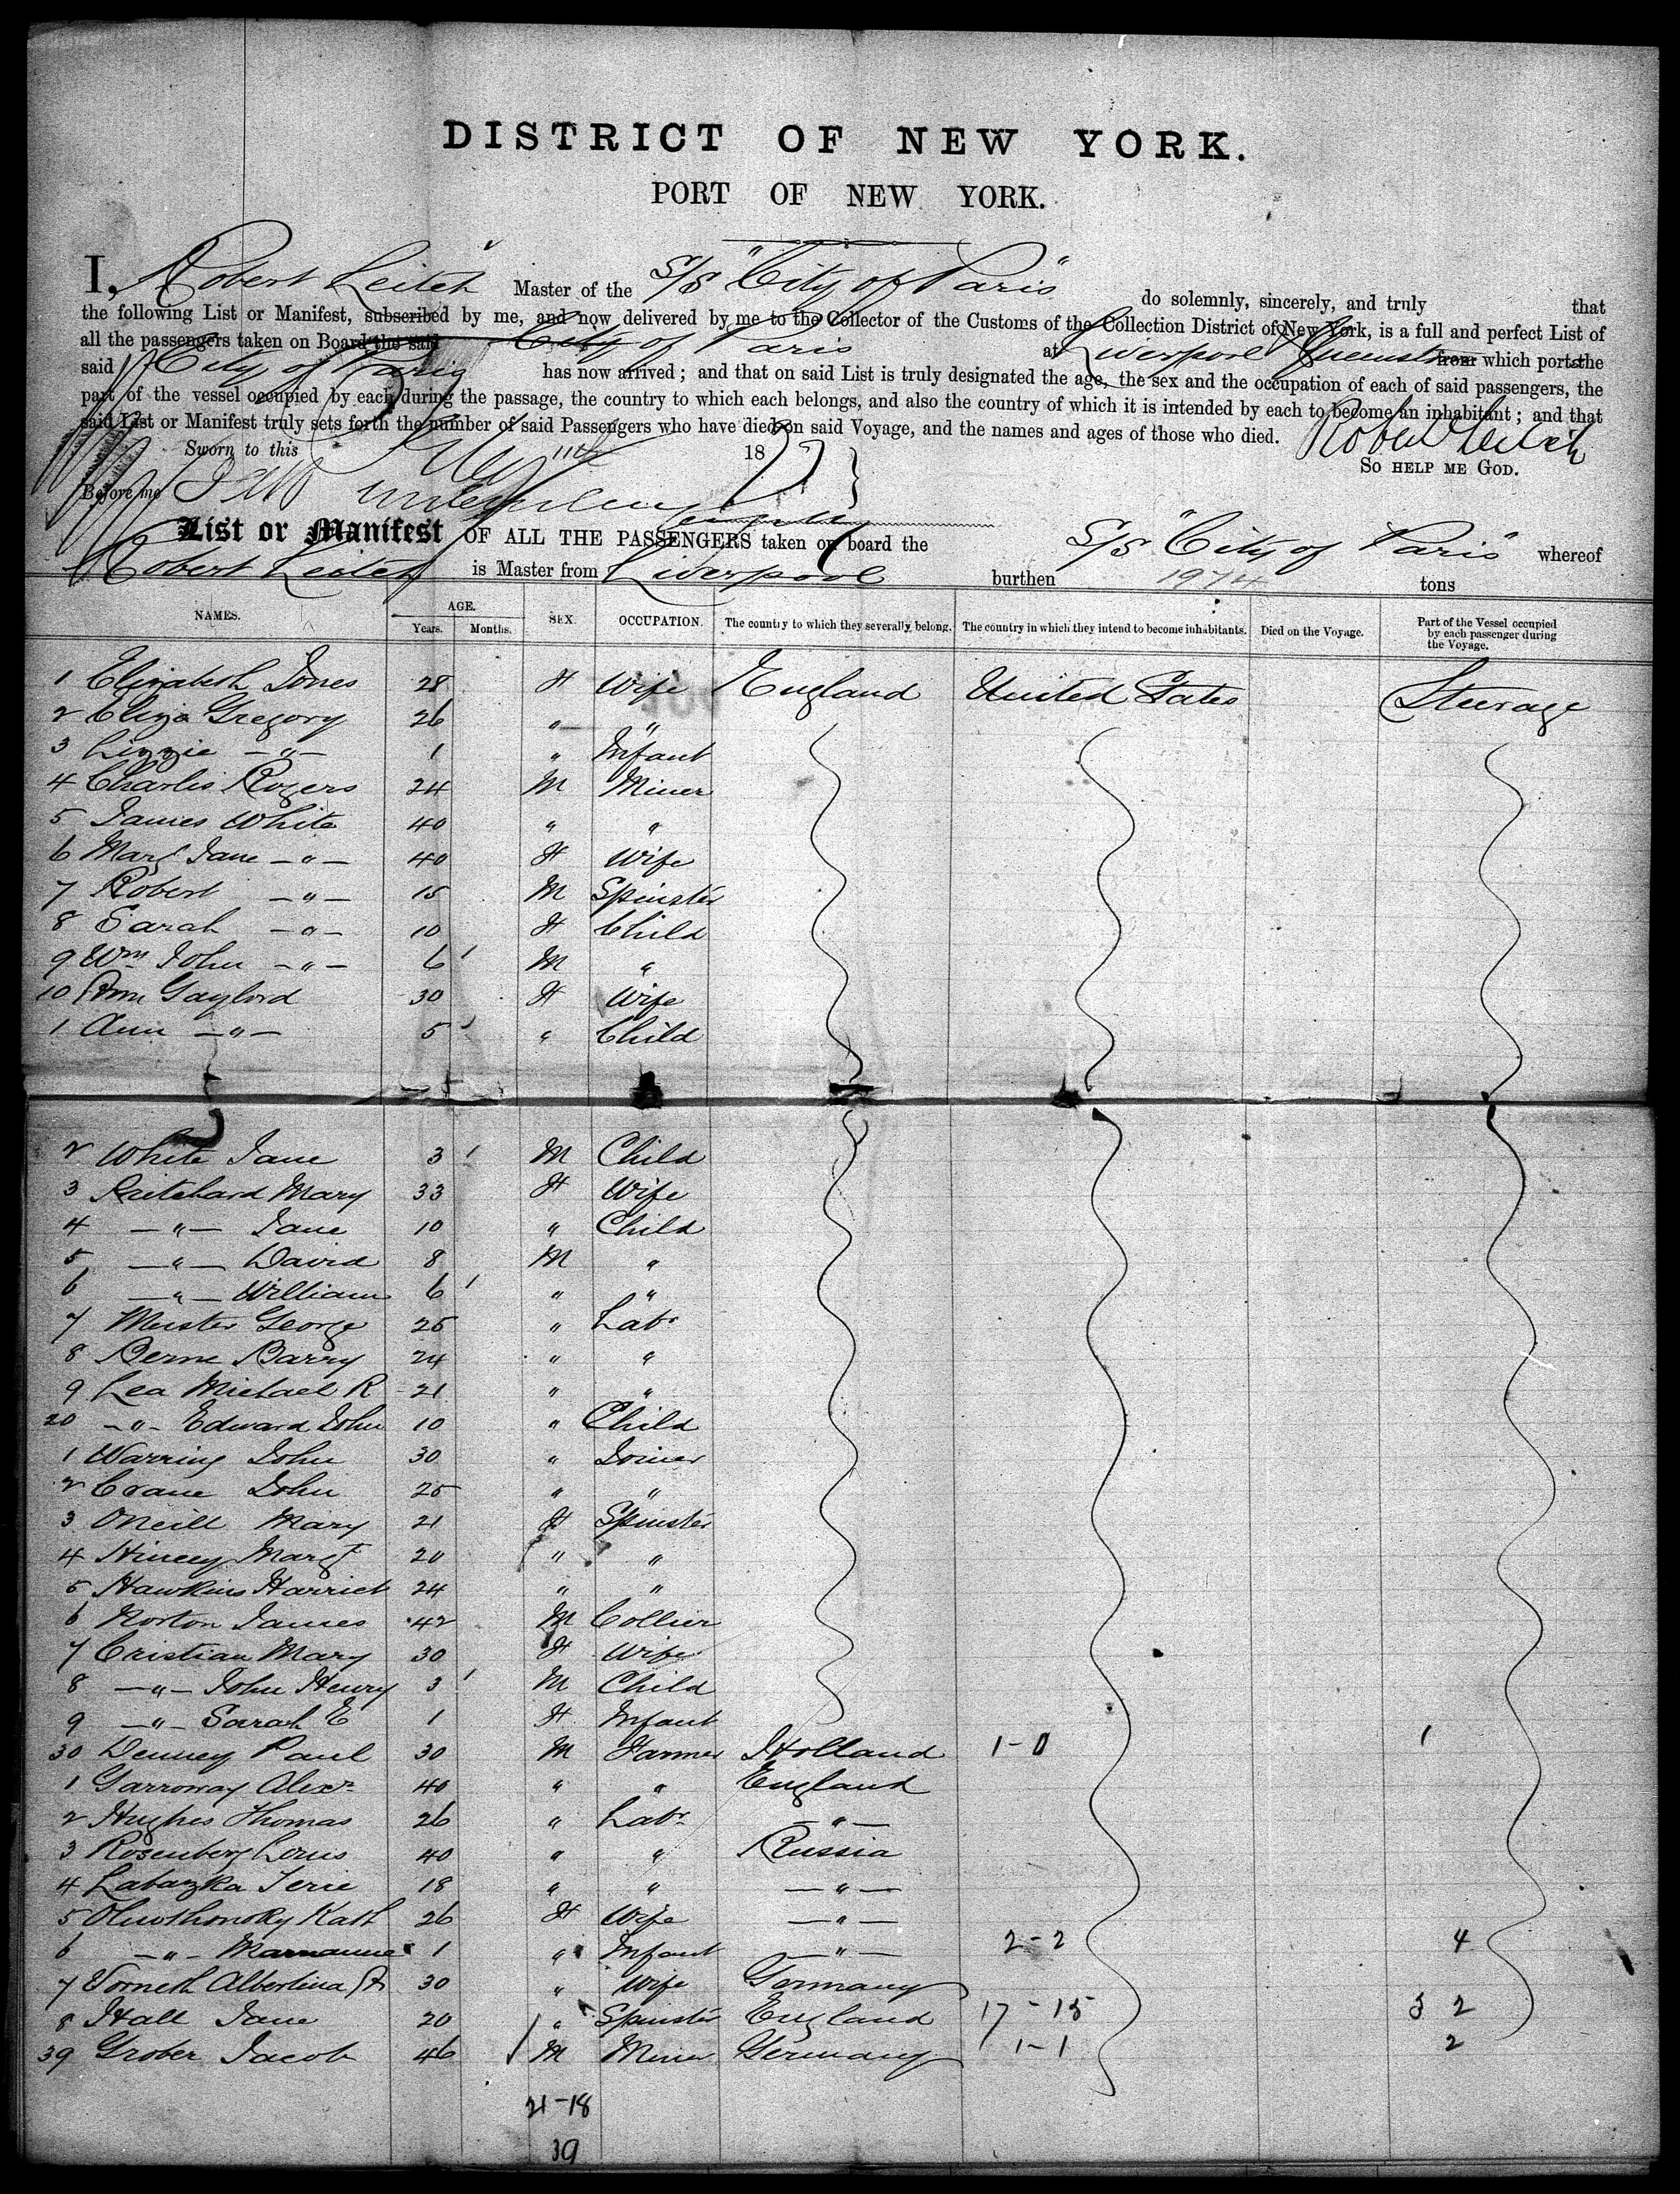 DISTRICT OF NEW YORK.
PORT OF NEW YORK.
I, Robert Leitch Master of the S/S "City of Paris" do solemnly, sincerely, and truly that
the following List or Manifest, subscribed by me, and now delivered by me to the Collector of the Customs of the Collection District of New York, is a full and perfect List of
all the passengers taken on Board the said City of Paris at Liverpool from which ports the
said City of Paris has now arrived; and that on said List is truly designated the age, the sex and the occupation of each of said passengers, the
part of the vessel occupied by each during the passage, the country to which each belongs, and also the country of which it is intended by each to become an inhabitant; and that
said List or Manifest truly sets forth the number of said Passengers who have died on said Voyage, and the names and ages of those who died. Robert Leitch
Sworn to this 18 SO HELP ME GOD.
Before me
List or Manifest OF ALL THE PASSENGERS taken on board the S/S "City of Paris" whereof
Robert Leitch is Master from Liverpool burthen 1974 tons
NAMES. AGE. Years. Months. SEX. OCCUPATION. The country to which they severally belong. The country in which they intend to become inhabitants. Died on the Voyage. Part of the Vessel occupied by each passenger during the Voyage.
1 Elizabeth Jones 28 F Wife England United States Steerage
2 Eliza Gregory 26 " "
3 Lizzie -"- 1 " Infant
4 Charles Rogers 24 M Miner
5 James White 40 " "
6 Mary Jane -"- 40 F Wife
7 Robert -"- 15 M Spinster
8 Sarah -"- 10 F Child
9 Wm John -"- 6 ' M "
10 Ann Gaylord 30 F Wife
1 Ann -"- 5 ' " Child
2 White Jane 3 ' M Child
3 Pritchard Mary 33 F Wife
4 -"- Jane 10 " Child
5 -"- David 8 M "
6 -"- William 6 ' " "
7 Meister George 25 " Labr
8 Berne Barry 24 " "
9 Lea Michael R 21 " "
20 -"- Edward John 10 " Child
1 Warring John 30 " Joiner
2 Crane John 25 " "
3 ONeill Mary 21 F Spinster
4 Hincey Margt 20 " "
5 Hawkins Harriet 24 " "
6 Norton James 42 M Collier
7 Cristian Mary 30 F Wife
8 -"- John Henry 3 ' M Child
9 -"- Sarah E 1 F Infant
30 Denney Paul 30 M Farmer Holland 1-0 1
1 Garroway Alexr 40 " " England
2 Hughes Thomas 26 " Labr -"-
3 Rosenberg Louis 40 " " Russia
4 Labazka Ierie 18 " " -"-
5 Oluwshonsky Kath 26 F Wife -"-
6 -"- Marianne 1 " Infant -"- 2-2 4
7 Torneth Albertina 30 " Wife Germany
8 Hall Jane 20 " Spinster England 17-15 3 2
39 Grober Jacob 46 M Miner Germany 1-1 2
21-18
39